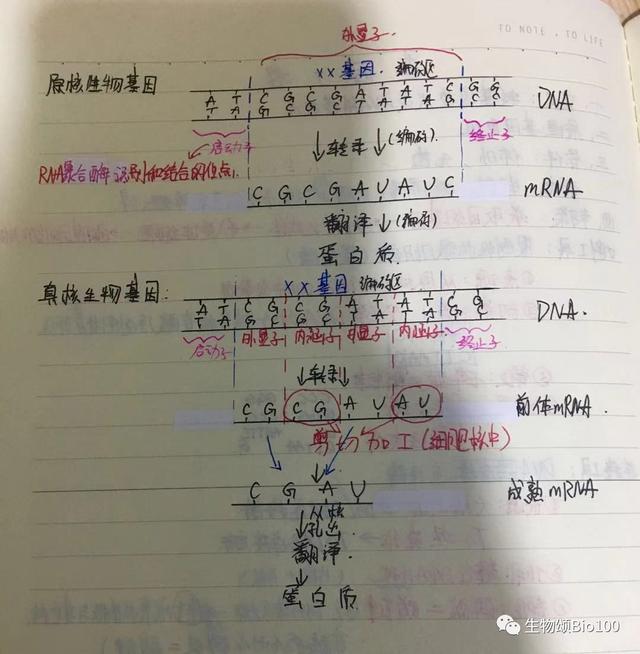 TO NOTE , TO LIFE
外显子
××基因. 编码区
原核生物基因
DNA
启动子
转录 (编码)
终止子
RNA聚合酶识别和结合的位点.
C G C G A U A U C
mRNA
翻译 (编码)
蛋白质.
××基因 编码区
真核生物基因:
DNA.
启动子
外显子 内含子 外显子 内含子
终止子
转录
C G C G A U A U
前体mRNA.
剪切加工(细胞核中)
C G A U
成熟mRNA
从核孔出
翻译.
蛋白质
生物颂Bio100